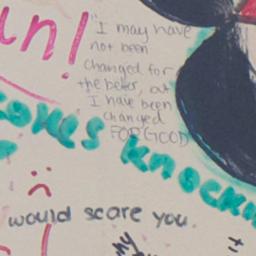 un!
"I may have
not been
changed for
the better, but
I have been
changed
FOR GOOD
comes knock
would scare you.